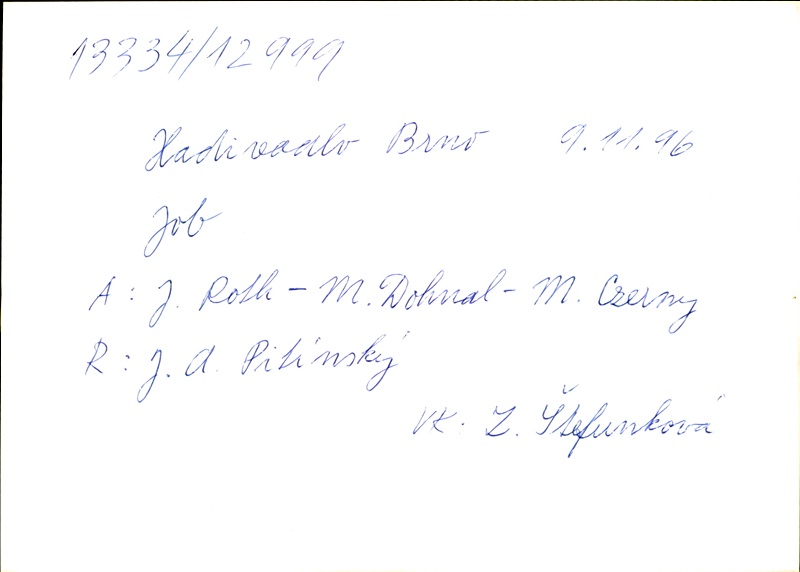 13334/12999
Hadivadlo Brno 9.11.96
Job
A: J. Roth - M. Dohnal - M. Czerny
R: J. A. Pitínský
VK. Z. Štefunková